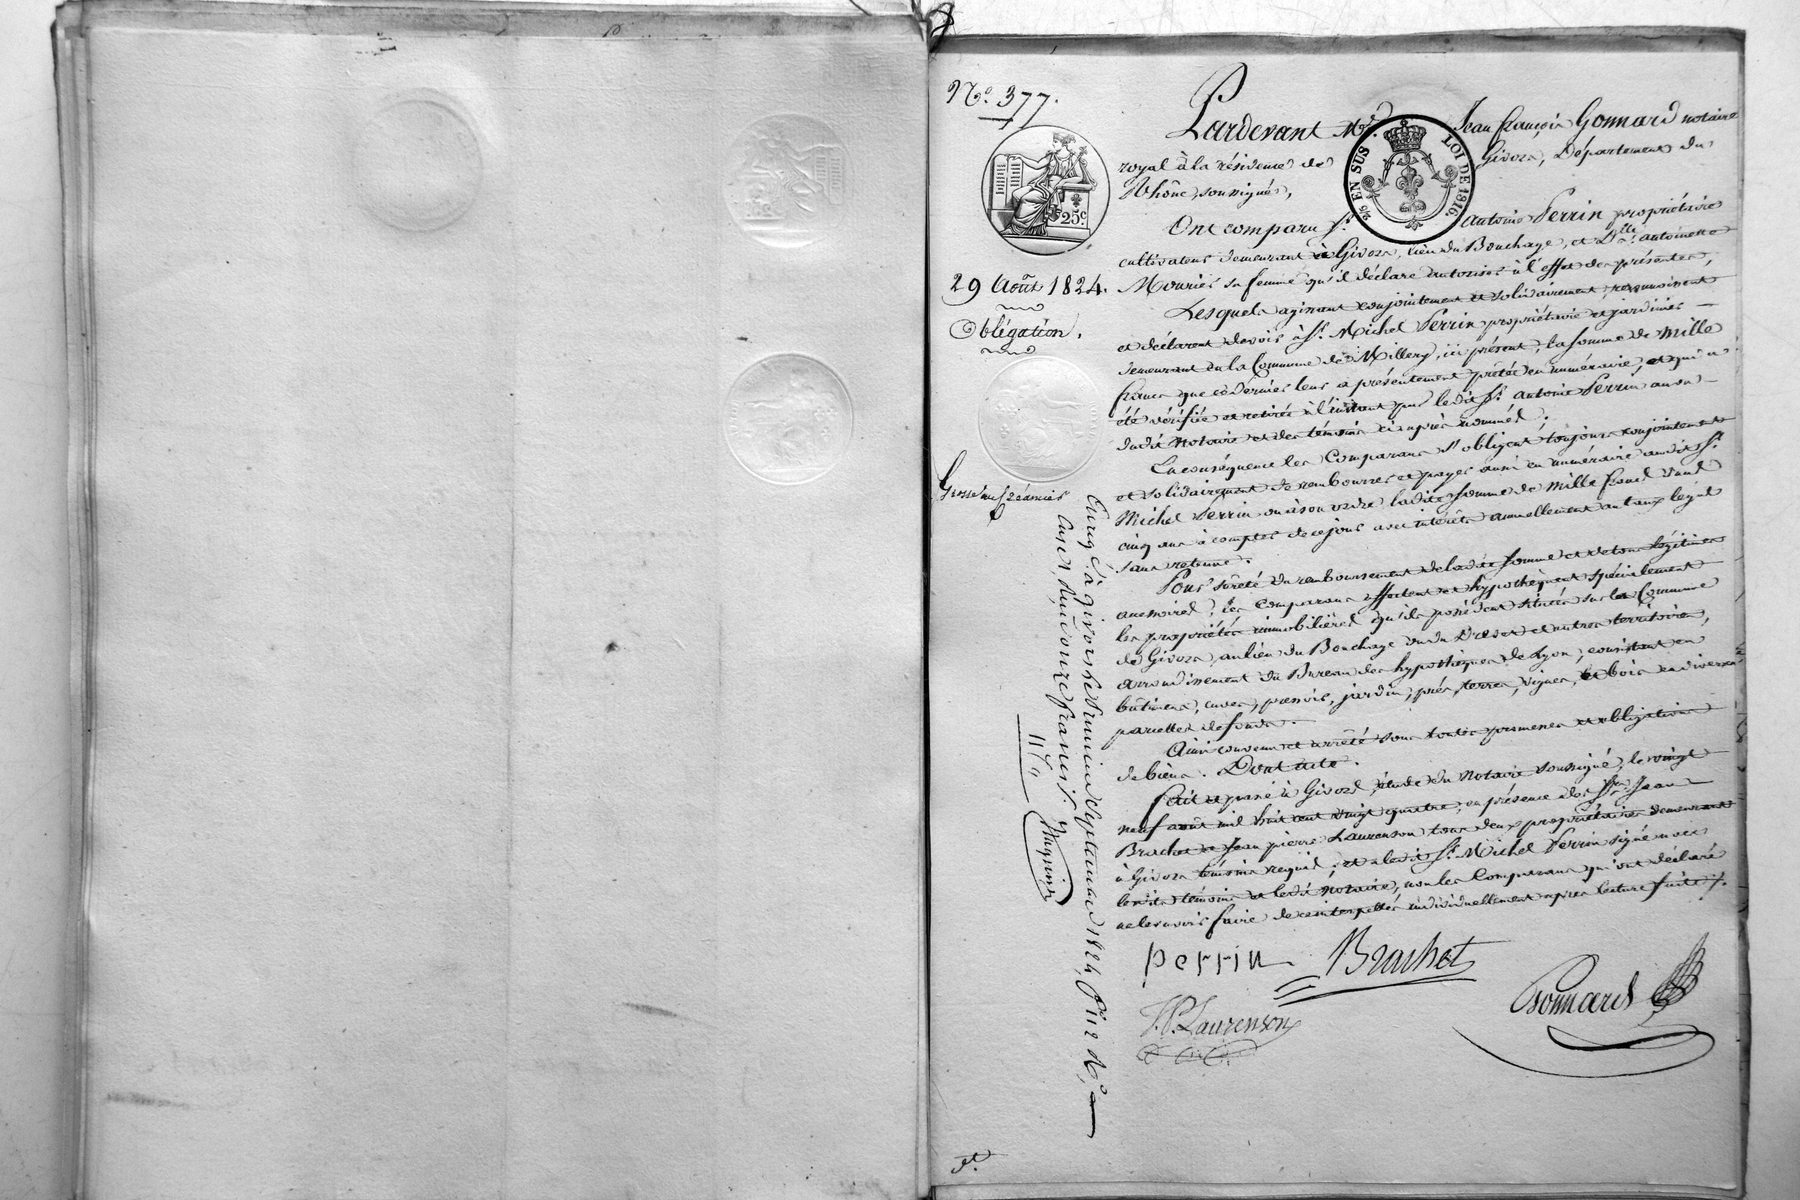 N.° 377.
25c
29 Août 1824.
Obligation.
Grosse au Créancier
Pardevant Me. Jean françois Gonnard notaire
royal à la résidence de Givors, Département du
Rhône, soussigné,
2/5 EN SUS LOI DE 1816.
Ont comparu Sr. antoine Perrin propriétaire
cultivateur demeurant à Givors, lieu du Bouchage, et Dlle. antoinette
Mouriés sa femme qu'il déclare autoriser à l'effet des présentes,
Lesquels agissant conjointement et solidairement, reconnoissent
et déclarent devoir à Sr. Michel Perrin propriétaire et jardinier
demeurant en la Commune de Millery, ici présent, la somme de mille
francs que ce dernier leur a présentement prêtée en numéraire, et qui a
été vérifiée et retirée à l'instant par ledit Sr. antoine Perrin au vu
dudit notaire et des témoins ci après nommés;
En conséquence les Comparans s'obligent toujours conjointement
et solidairement de rembourser et payer aussi en numéraire audit Sr.
Michel Perrin ou à son ordre ladite somme de mille francs dans
cinq ans à compter de ce jour avec intérêts annuellement au taux légal
sans retenue.
Pour sûreté du remboursement de ladite somme et de tous légitimes
accessoires, les comparans affectent et hypothèquent spécialement
les propriétés immobilières qu'ils possèdent situées sur la Commune
de Givors, au lieu du Bouchage ou du et autres territoires,
arrondissement du Bureau des hypothèques de Lyon, consistant en
bâtimens, cuves, pressoir, jardin, prés, terres, vignes, et bois en diverses
parcelles de fonds.
Ainsi convenu et arrêté sous toutes promesses et obligations
de biens. Dont acte.
fait et passé à Givors, étude du notaire soussigné, le vingt
neuf août mil huit cent vingt quatre, en présence des Srs. Jean
Brachet et Jean pierre Laurenson tous deux propriétaires demeurant
à Givors témoins requis; et a ledit Sr. Michel Perrin signé avec
lesdits témoins et ledit notaire, non les Comparans qui ont déclaré
ne le savoir faire de ce interpellés individuellement après lecture faite.
perrin Brachet
J. P. Laurenson
Gonnard
Enreg.é à givors le premier Septembre 1824, f° 112 N.°
Case 1, Reçu onze francs.